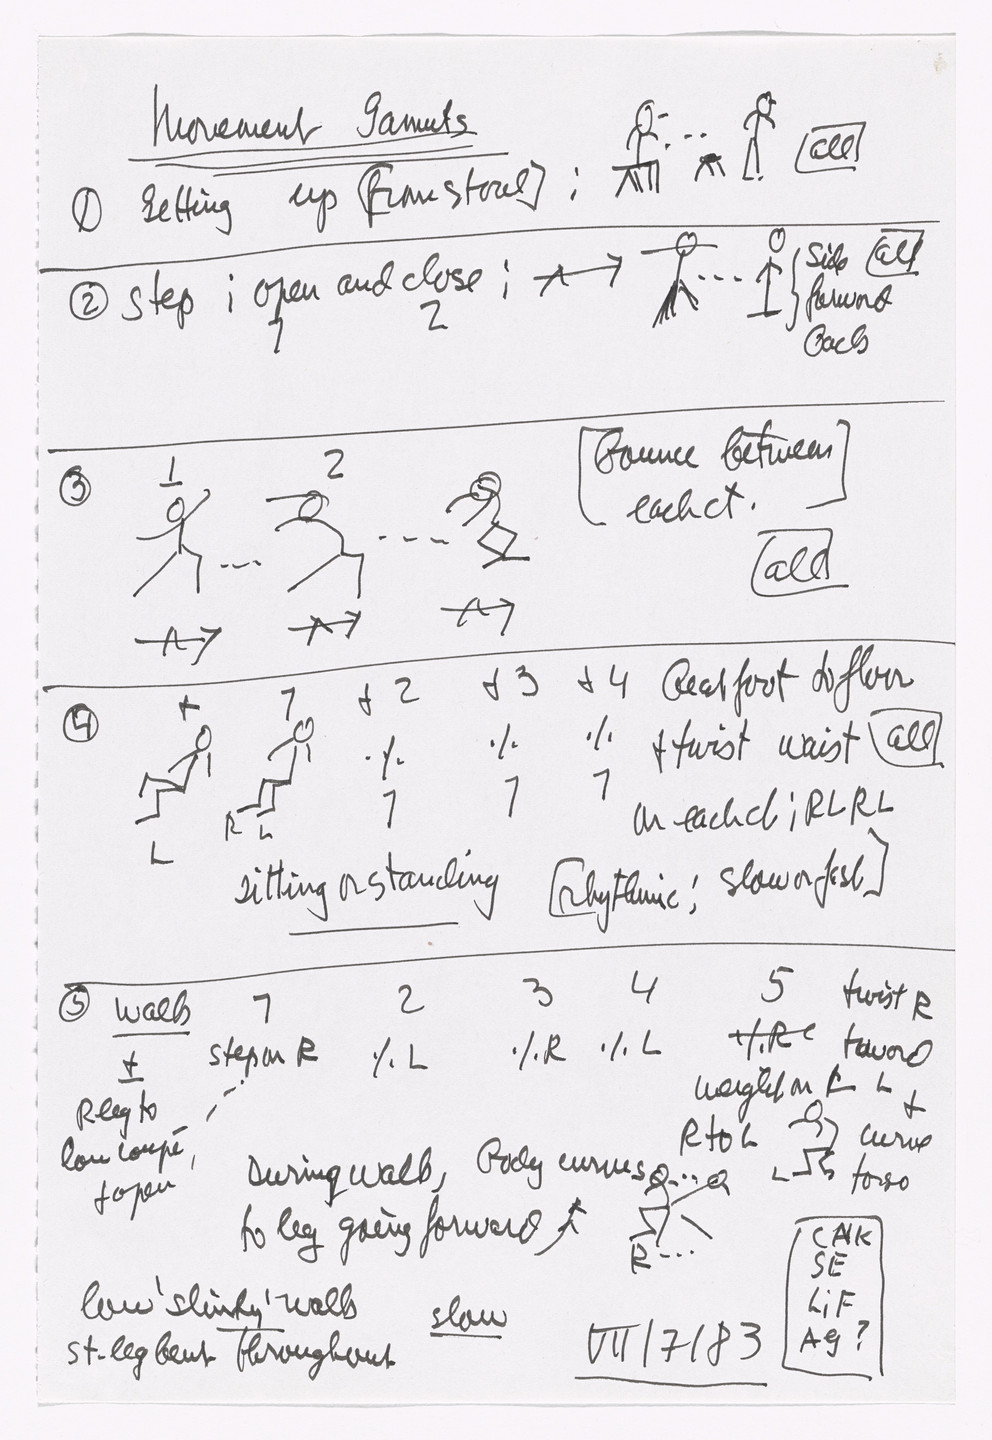 Movement Gamuts
① Getting up [from stool] ; all
② Step ; open and close ; side all
1 2 forward
back
③ 1 2 [Bounce between
each ct.]
all
④ + 1 + 2 + 3 + 4 Beat foot to floor
·/. ·/. ·/. + twist waist all
R L 1 1 1 on each ct ; R L R L
L
sitting or standing [rhythmic ; slow or fast]
⑤ walk 1 2 3 4 5 twist R
+ step on R ·/. L ·/. R ·/. L ·/. R toward
R leg to weight on L +
low coupé, R to L L curve
+ open During walk, Body curves torso
to leg going forward R
CAK
SE
LiF
Ag ?
low 'slinky' walk slow
st. leg bent throughout
VII/7/83